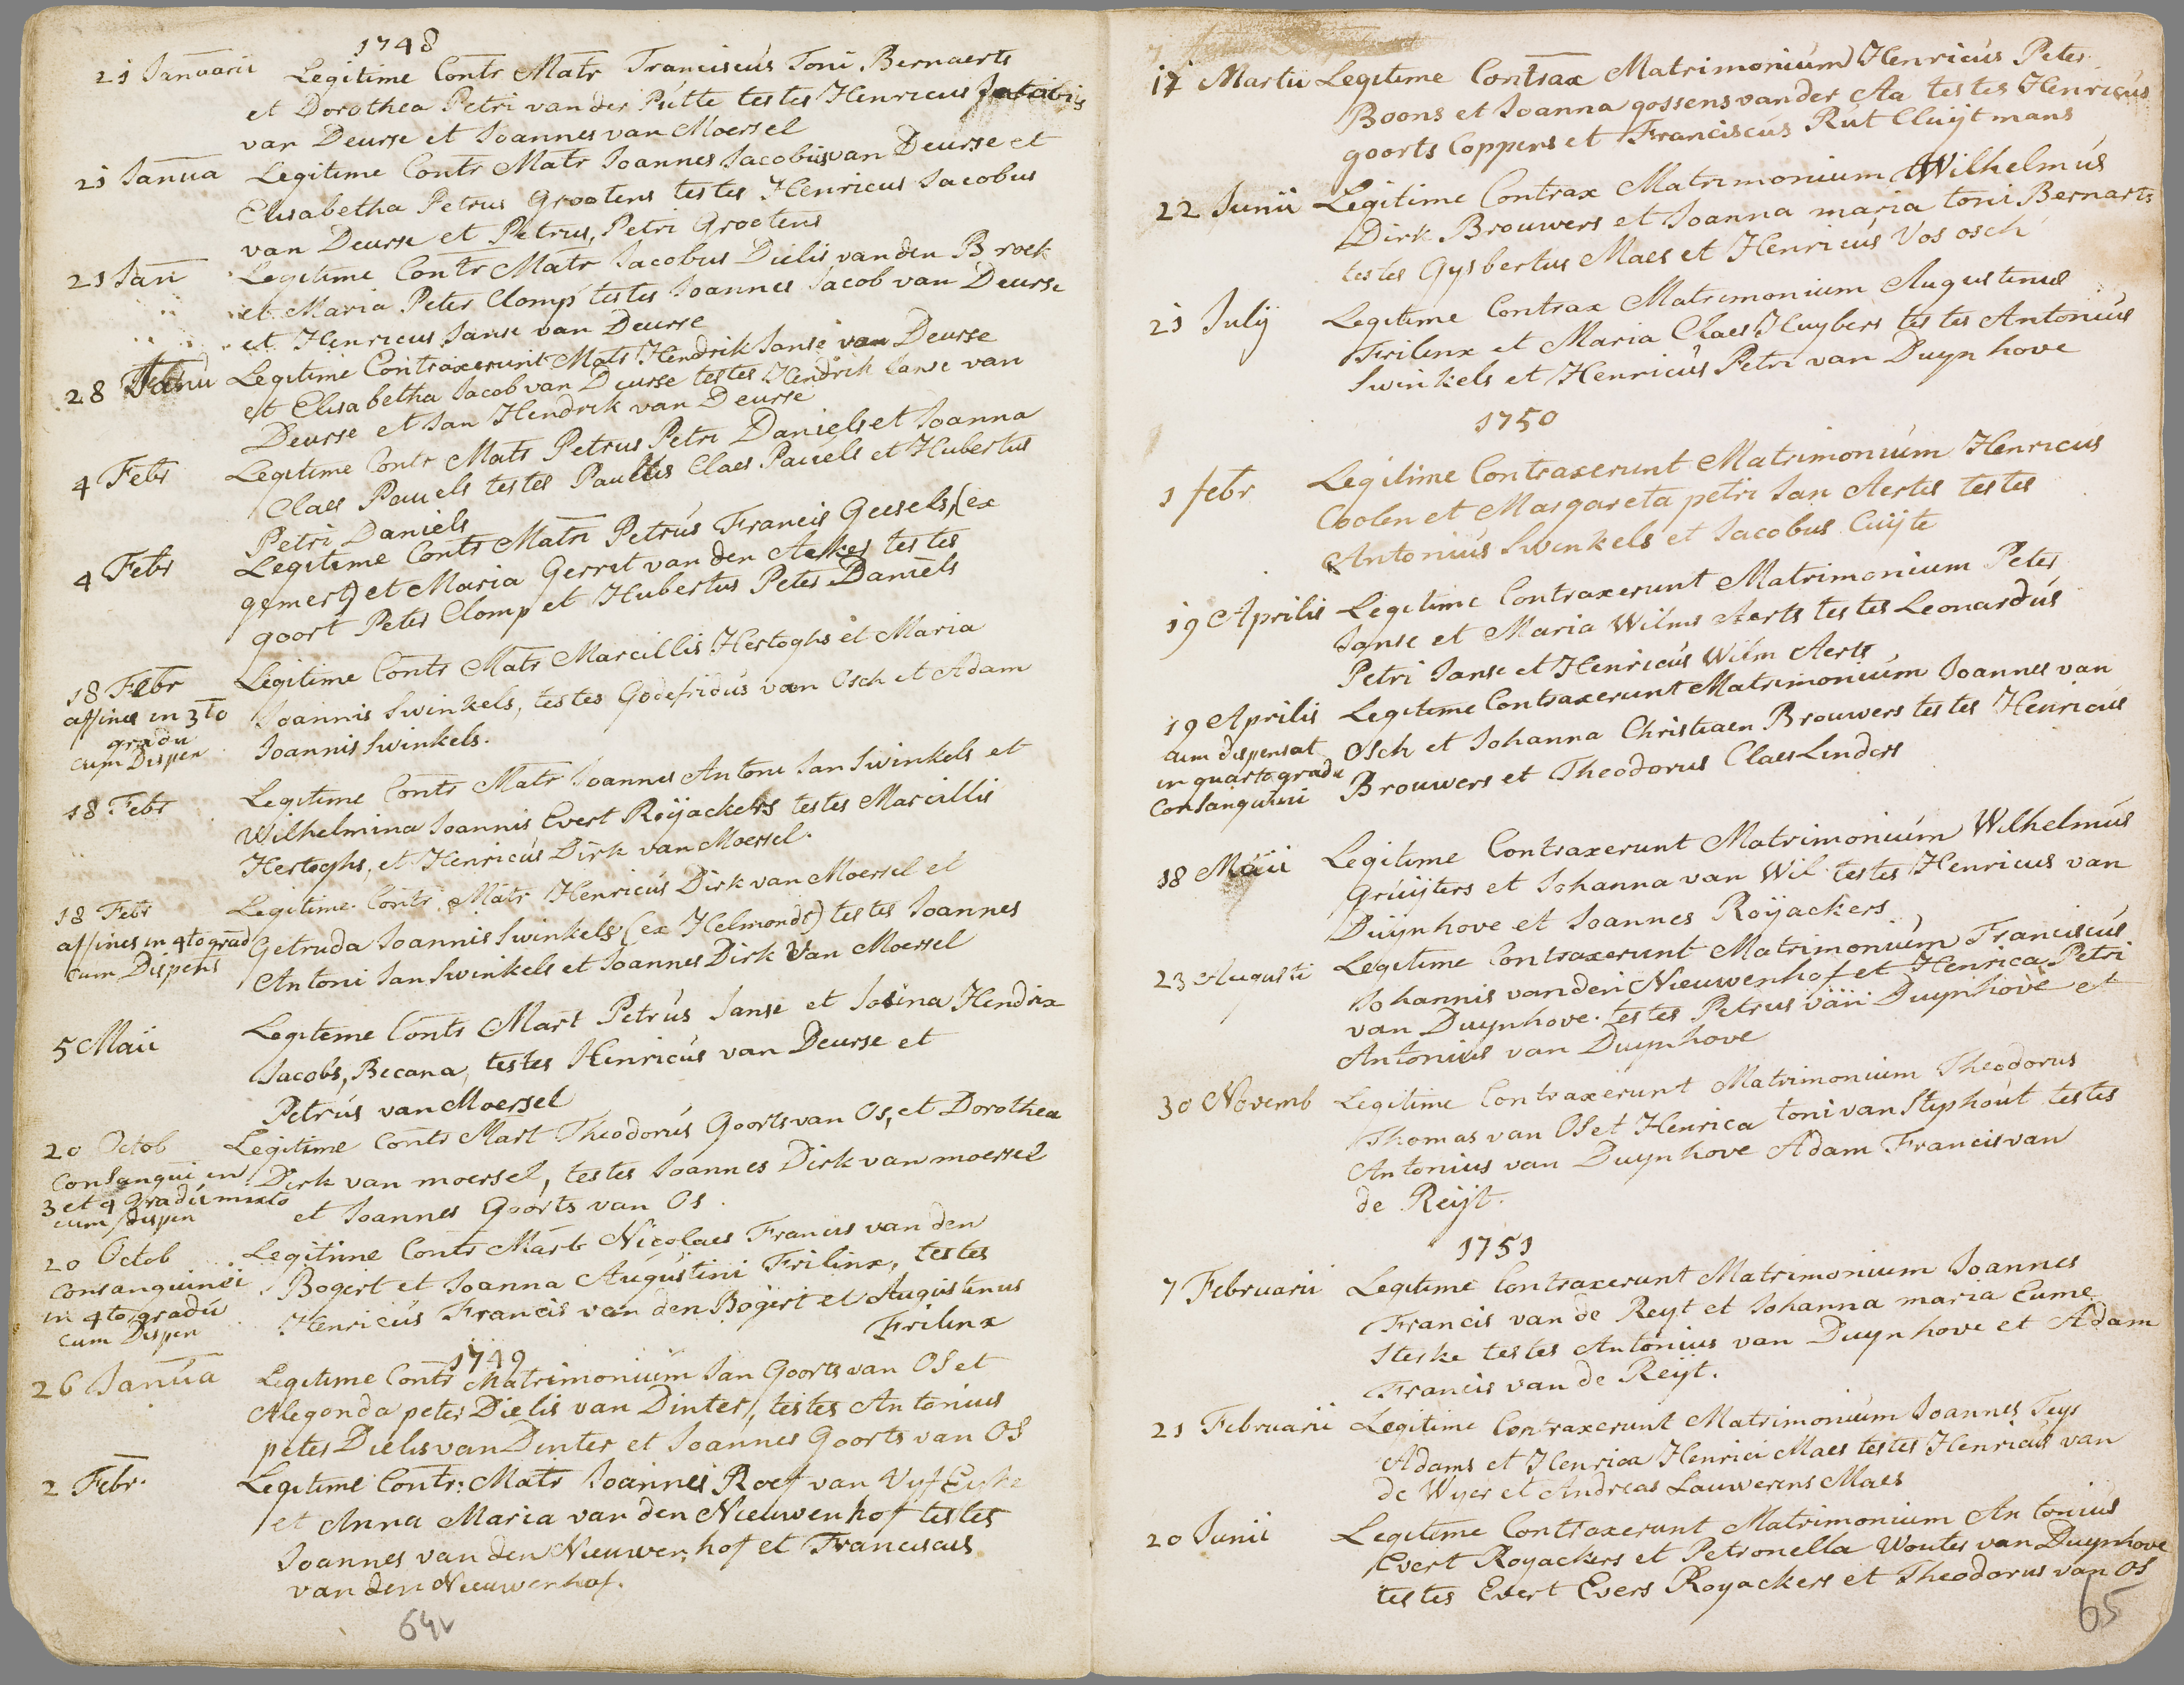 1748
21 Januarii Legitime Contr Matr Franciscus Toni Bernaerts
et Dorothea Petri van der Putte testes Henricus Jacobus
van Deurse et Joannes van Moersel
21 Janua Legitime Contr Matr Joannes Jacobus van Deurse et
Elisabetha Petrus Grootens testes Henricus Jacobus
van Deurse et Petrus, Petri Grootens
21 Jan Legitime Contr Matr Jacobus Dielis van den Broek
et Maria Peter Clomp testes Joannes Jacob van Deurse
et Henricus Janse van Deurse
28 Janu Legitime Contraxerunt Matr Hendrik Janse van Deurse
et Elisabetha Jacob van Deurse testes Hendrik Janse van
Deurse et Jan Hendrik van Deurse
4 Febr Legitime Contr Matr Petrus Petri Daniels et Joanna
Claes Pauels testes Paulus Claes Pauels et Hubertus
Petri Daniels
4 Febr Legitime Contr Matri Petrus Francis Geesels (ex
gemert) et Maria Gerrit van den Aelker testes
goort Peter Clomp et Hubertus Peter Daniels
18 Febr Legitime Contr Matr Marcillis Hertoghs et Maria
affines in 3to Joannis Swinkels, testes Godefridus van Osch et Adam
gradu Joannis Swinkels.
cum Dispen
18 Febr Legitime Contr Matr Joannes Antoni Jan Swinkels et
Wilhelmina Joannis Evert Roijackers testes Marcillis
Hertoghs, et Henricus Dirk van Moersel.
18 Febr Legitime Contr Matr Henricus Dirk van Moersel et
affines in 4to grad Getruda Joannis Swinkels (ex Helmondt) testes Joannes
cum Dispens Antoni Jan Swinkels et Joannes Dirk Van Moersel
5 Maii Legiteme Contr Mart Petrus Janse et Josina Hendrix
Jacobs, Becana, testes Henricus van Deurse et
Petrus van Moersel
20 Octob Legitime Contr Mart Theodorus Goorts van Os, et Dorothea
Consangui in Dirk van moersel, testes Joannes Dirk van moersel
3 et 4 Gradu mixto et Joannes Goorts van Os.
cum dispen
20 Octob Legitime Contr Mart Nicolaes Francis van den
Consanguinei Bogert et Joanna Augustini Frilinx, testes
in 4to gradu Henricus Francis van den Bogert et Augustinus
cum Dispen Frilinx
1749
26 Janua Legitime Contr Matrimonium Jan Goorts van OS et
Alegonda peter Dielis van Dinter, testes Antonius
peter Dielis van Dinter et Joannes Goorts van OS
2 Febr. Legitime Contr: Matr Joannes Roef van Vyf Eyke
et Anna Maria van den Nieuwenhof testes
Joannes van den Nieuwenhof et Franciscus
van den Nieuwenhof.
64v
17 Martii Legitime Contrax Matrimonium Henricus Peter
Boons et Joanna gossens vander Aa testes Henricus
goorts Coppens et Franciscus Rut Cluijtmans
22 Junii Legitime Contrax Matrimonium Wilhelmus
Dirk Brouwers et Joanna maria toni Bernarts
testes Gysbertus Maes et Henricus Vos osch
21 Julij Legitime Contrax Matrimonium Augustinus
Frilinx et Maria Claes Huybers testes Antonius
Swinkels et Henricus Petri van Duynhove
1750
1 febr Legitime Contraxerunt Matrimonium Henricus
Coolen et Margareta petri Jan Aerts testes
Antonius Swinkels et Jacobus Cuijte
19 Aprilis Legitime Contraxerunt Matrimonium Peter
Janse et Maria Wilms Aerts testes Leonardus
Petri Janse et Henricus Wilm Aerts
19 Aprilis Legitime Contraxerunt Matrimonium Joannes van
cum dispensat Osch et Johanna Christiaen Brouwers testes Henricus
in quarto gradu Brouwers et Theodorus Claes Linders
Consanguini
18 Maii Legitime Contraxerunt Matrimonium Wilhelmus
Gruijters et Johanna van Wil. testes Henricus van
Duijnhove et Joannes Roijackers
23 Augusti Legitime Contraxerunt Matrimonium Franciscus
Johannis van den Nieuwenhof et Henrica Petri
van Duynhove. testes Petrus van Duynhove et
Antonius van Duynhove
30 Novemb Legitime Contraxerunt Matrimonium Theodorus
Thomas van OS et Henrica toni van Stiphout testes
Antonius van Duynhove Adam Francis van
de Reijt.
1751
7 Februarii Legitime Contraxerunt Matrimonium Joannes
Francis van de Reyt et Johanna maria Eume
Sterke testes Antonius van Duynhove et Adam
Francis van de Reijt.
21 Februarii Legitime Contraxerunt Matrimonium Joannes Teys
Adams et Henrica Henrici Maes testes Henricus van
de Wyer et Andreas Lauwerens Maes
20 Junii Legitime Contraxerunt Matrimonium Antonius
Evert Royackers et Petronella Wouter van Duynhove
testes Evert Evers Royackers et Theodorus van OS
65